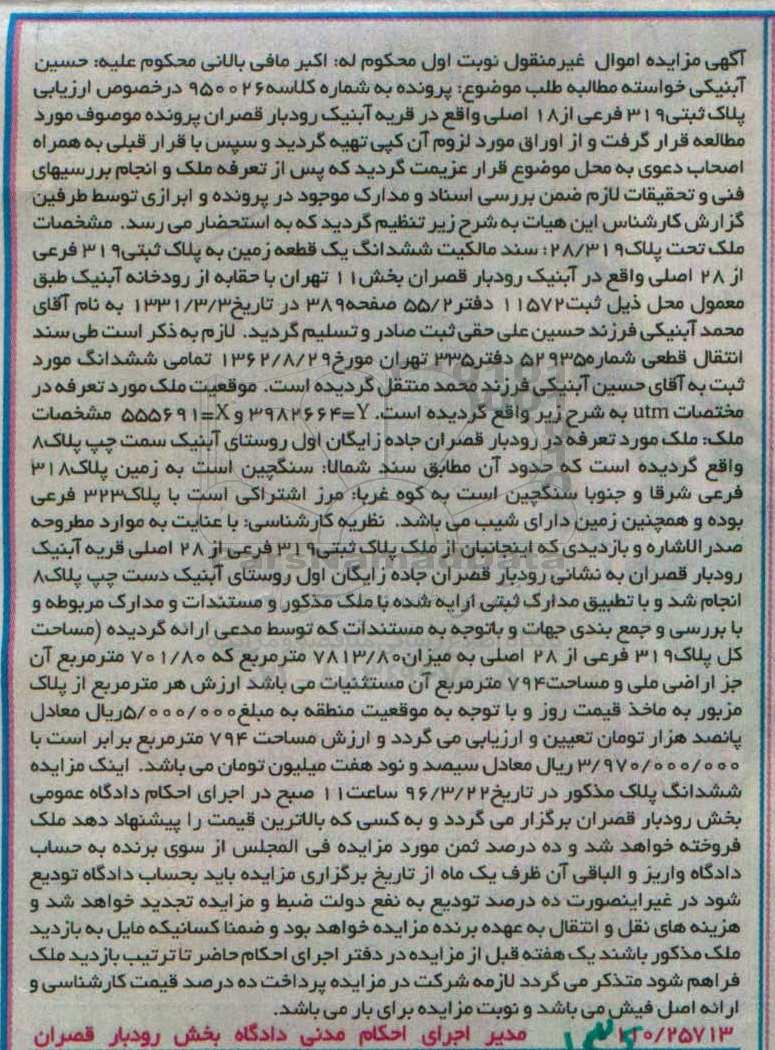 آگهی مزایده اموال غیرمنقول نوبت اول محکوم له: اکبر مافی بالانی محکوم علیه: حسین
آبنیکی خواسته مطالبه طلب موضوع: پرونده به شماره کلاسه۹۵۰۰۲۶ درخصوص ارزیابی
پلاک ثبتی۳۱۹ فرعی از۱۸ اصلی واقع در قریه آبنیک رودبار قصران پرونده موصوف مورد
مطالعه قرار گرفت و از اوراق مورد لزوم آن کپی تهیه گردید و سپس با قرار قبلی به همراه
اصحاب دعوی به محل موضوع قرار عزیمت گردید که پس از تعرفه ملک و انجام بررسیهای
فنی و تحقیقات لازم ضمن بررسی اسناد و مدارک موجود در پرونده و ابرازی توسط طرفین
گزارش کارشناس این هیات به شرح زیر تنظیم گردید که به استحضار می رسد. مشخصات
ملک تحت پلاک۲۸/۳۱۹: سند مالکیت ششدانگ یک قطعه زمین به پلاک ثبتی۳۱۹ فرعی
از ۲۸ اصلی واقع در آبنیک رودبار قصران بخش۱۱ تهران با حقابه از رودخانه آبنیک طبق
معمول محل ذیل ثبت۱۱۵۷۲ دفتر۵۵/۲ صفحه۳۸۹ در تاریخ۱۳۳۱/۳/۳ به نام آقای
محمد آبنیکی فرزند حسین علی حقی ثبت صادر و تسلیم گردید. لازم به ذکر است طی سند
انتقال قطعی شماره۵۲۹۳۵ دفتر۳۳۵ تهران مورخ۱۳۶۲/۸/۲۹ تمامی ششدانگ مورد
ثبت به آقای حسین آبنیکی فرزند محمد منتقل گردیده است. موقعیت ملک مورد تعرفه در
مختصات utm به شرح زیر واقع گردیده است. Y=۳۹۸۲۶۶۴ و X=۵۵۵۶۹۱ مشخصات
ملک: ملک مورد تعرفه در رودبار قصران جاده زایگان اول روستای آبنیک سمت چپ پلاک۸
واقع گردیده است که حدود آن مطابق سند شمالا: سنگچین است به زمین پلاک۳۱۸
فرعی شرقا و جنوبا سنگچین است به کوه غربا: مرز اشتراکی است با پلاک۳۲۳ فرعی
بوده و همچنین زمین دارای شیب می باشد. نظریه کارشناسی: با عنایت به موارد مطروحه
صدرالاشاره و بازدیدی که اینجانبان از ملک پلاک ثبتی۳۱۹ فرعی از ۲۸ اصلی قریه آبنیک
رودبار قصران به نشانی رودبار قصران جاده زایگان اول روستای آبنیک دست چپ پلاک۸
انجام شد و با تطبیق مدارک ثبتی ارایه شده با ملک مذکور و مستندات و مدارک مربوطه و
با بررسی و جمع بندی جهات و باتوجه به مستندات که توسط مدعی ارائه گردیده (مساحت
کل پلاک۳۱۹ فرعی از ۲۸ اصلی به میزان۷۸۱۳/۸۰ مترمربع که ۷۰۱/۸۰ مترمربع آن
جز اراضی ملی و مساحت۷۹۴ مترمربع آن مستثنیات می باشد ارزش هر مترمربع از پلاک
مزبور به ماخذ قیمت روز و با توجه به موقعیت منطقه به مبلغ۵/۰۰۰/۰۰۰ریال معادل
پانصد هزار تومان تعیین و ارزیابی می گردد و ارزش مساحت ۷۹۴ مترمربع برابر است با
۳/۹۷۰/۰۰۰/۰۰۰ ریال معادل سیصد و نود هفت میلیون تومان می باشد. اینک مزایده
ششدانگ پلاک مذکور در تاریخ۹۶/۳/۲۲ ساعت۱۱ صبح در اجرای احکام دادگاه عمومی
بخش رودبار قصران برگزار می گردد و به کسی که بالاترین قیمت را پیشنهاد دهد ملک
فروخته خواهد شد و ده درصد ثمن مورد مزایده فی المجلس از سوی برنده به حساب
دادگاه واریز و الباقی آن ظرف یک ماه از تاریخ برگزاری مزایده باید بحساب دادگاه تودیع
شود در غیراینصورت ده درصد تودیع به نفع دولت ضبط و مزایده تجدید خواهد شد و
هزینه های نقل و انتقال به عهده برنده مزایده خواهد بود و ضمنا کسانیکه مایل به بازدید
ملک مذکور باشند یک هفته قبل از مزایده در دفتر اجرای احکام حاضر تا ترتیب بازدید ملک
فراهم شود متذکر می گردد لازمه شرکت در مزایده پرداخت ده درصد قیمت کارشناسی و
ارائه اصل فیش می باشد و نوبت مزایده برای بار می باشد.
۱۱۰/۲۵۷۱۳ مدیر اجرای احکام مدنی دادگاه بخش رودبار قصران